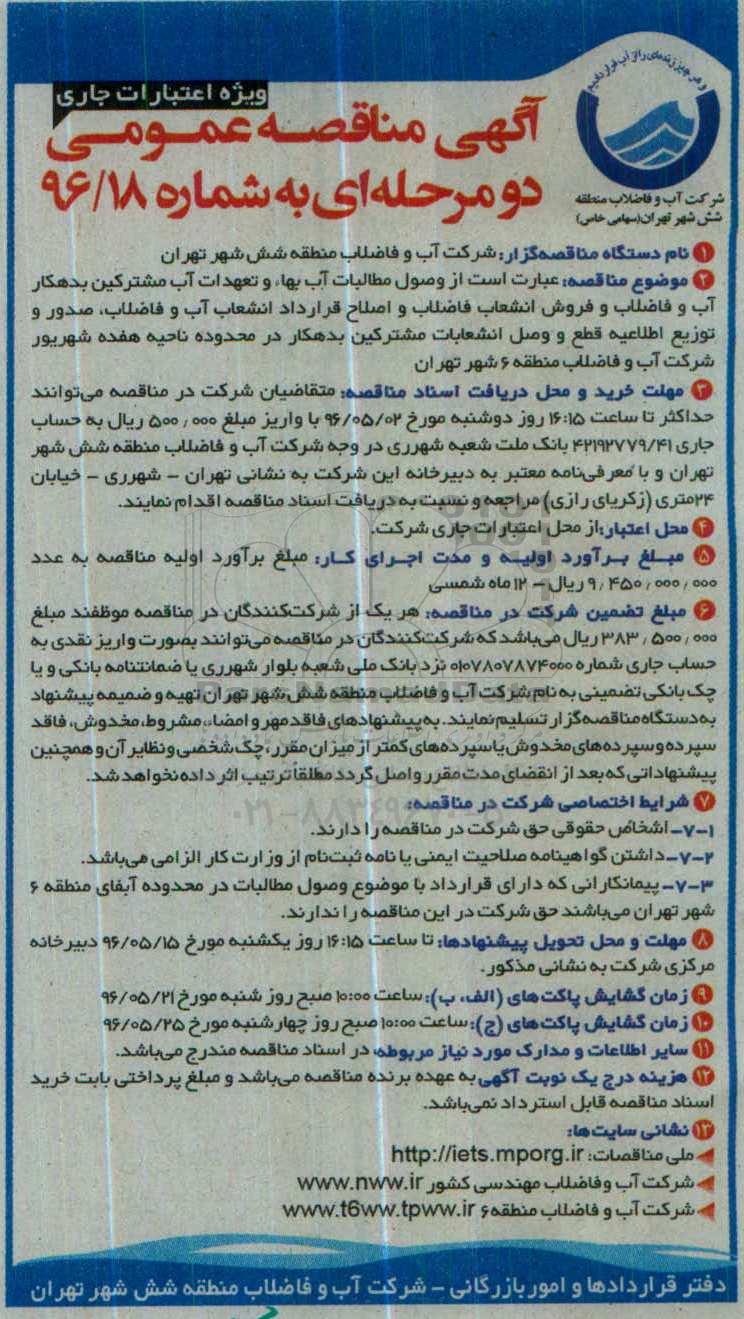 و هر چیز زنده‌ای را از آب قرار دادیم
شرکت آب و فاضلاب منطقه
شش شهر تهران (سهامی خاص)
ویژه اعتبارات جاری
آگهی مناقصه عمومی
دو مرحله‌ای به شماره ۹۶/۱۸
۱ نام دستگاه مناقصه‌گزار: شرکت آب و فاضلاب منطقه شش شهر تهران
۲ موضوع مناقصه: عبارت است از وصول مطالبات آب بهاء و تعهدات آب مشترکین بدهکار
آب و فاضلاب و فروش انشعاب فاضلاب و اصلاح قرارداد انشعاب آب و فاضلاب، صدور و
توزیع اطلاعیه قطع و وصل انشعابات مشترکین بدهکار در محدوده ناحیه هفده شهریور
شرکت آب و فاضلاب منطقه ۶ شهر تهران
۳ مهلت خرید و محل دریافت اسناد مناقصه: متقاضیان شرکت در مناقصه می‌توانند
حداکثر تا ساعت ۱۶:۱۵ روز دوشنبه مورخ ۹۶/۰۵/۰۲ با واریز مبلغ ۵۰۰٫۰۰۰ ریال به حساب
جاری ۴۲۱۹۲۷۷۹/۴۱ بانک ملت شعبه شهرری در وجه شرکت آب و فاضلاب منطقه شش شهر
تهران و با معرفی‌نامه معتبر به دبیرخانه این شرکت به نشانی تهران - شهرری - خیابان
۲۴متری (زکریای رازی) مراجعه و نسبت به دریافت اسناد مناقصه اقدام نمایند.
۴ محل اعتبار: از محل اعتبارات جاری شرکت.
۵ مبلغ برآورد اولیه و مدت اجرای کار: مبلغ برآورد اولیه مناقصه به عدد
۹٫۴۵۰٫۰۰۰٫۰۰۰ ریال - ۱۲ ماه شمسی
۶ مبلغ تضمین شرکت در مناقصه: هر یک از شرکت‌کنندگان در مناقصه موظفند مبلغ
۳۸۳٫۵۰۰٫۰۰۰ ریال می‌باشد که شرکت‌کنندگان در مناقصه می‌توانند بصورت واریز نقدی به
حساب جاری شماره ۰۱۰۷۸۰۷۸۷۴۰۰۰ نزد بانک ملی شعبه بلوار شهرری یا ضمانتنامه بانکی و یا
چک بانکی تضمینی به نام شرکت آب و فاضلاب منطقه شش شهر تهران تهیه و ضمیمه پیشنهاد
به دستگاه مناقصه‌گزار تسلیم نمایند. به پیشنهادهای فاقد مهر و امضاء، مشروط، مخدوش، فاقد
سپرده و سپرده‌های مخدوش یا سپرده‌های کمتر از میزان مقرر، چک شخصی و نظایر آن و همچنین
پیشنهاداتی که بعد از انقضای مدت مقرر واصل گردد مطلقاً ترتیب اثر داده نخواهد شد.
۷ شرایط اختصاصی شرکت در مناقصه:
۷-۱- اشخاص حقوقی حق شرکت در مناقصه را دارند.
۷-۲- داشتن گواهینامه صلاحیت ایمنی یا نامه ثبت‌نام از وزارت کار الزامی می‌باشد.
۷-۳- پیمانکارانی که دارای قرارداد با موضوع وصول مطالبات در محدوده آبفای منطقه ۶
شهر تهران می‌باشند حق شرکت در این مناقصه را ندارند.
۸ مهلت و محل تحویل پیشنهادها: تا ساعت ۱۶:۱۵ روز یکشنبه مورخ ۹۶/۰۵/۱۵ دبیرخانه
مرکزی شرکت به نشانی مذکور.
۹ زمان گشایش پاکت‌های (الف، ب): ساعت ۱۰:۰۰ صبح روز شنبه مورخ ۹۶/۰۵/۲۱
۱۰ زمان گشایش پاکت‌های (ج): ساعت ۱۰:۰۰ صبح روز چهارشنبه مورخ ۹۶/۰۵/۲۵
۱۱ سایر اطلاعات و مدارک مورد نیاز مربوطه در اسناد مناقصه مندرج می‌باشد.
۱۲ هزینه درج یک نوبت آگهی به عهده برنده مناقصه می‌باشد و مبلغ پرداختی بابت خرید
اسناد مناقصه قابل استرداد نمی‌باشد.
۱۳ نشانی سایت‌ها:
ملی مناقصات: http://iets.mporg.ir
شرکت آب وفاضلاب مهندسی کشور www.nww.ir
شرکت آب و فاضلاب منطقه۶ www.t6ww.tpww.ir
دفتر قراردادها و امور بازرگانی - شرکت آب و فاضلاب منطقه شش شهر تهران